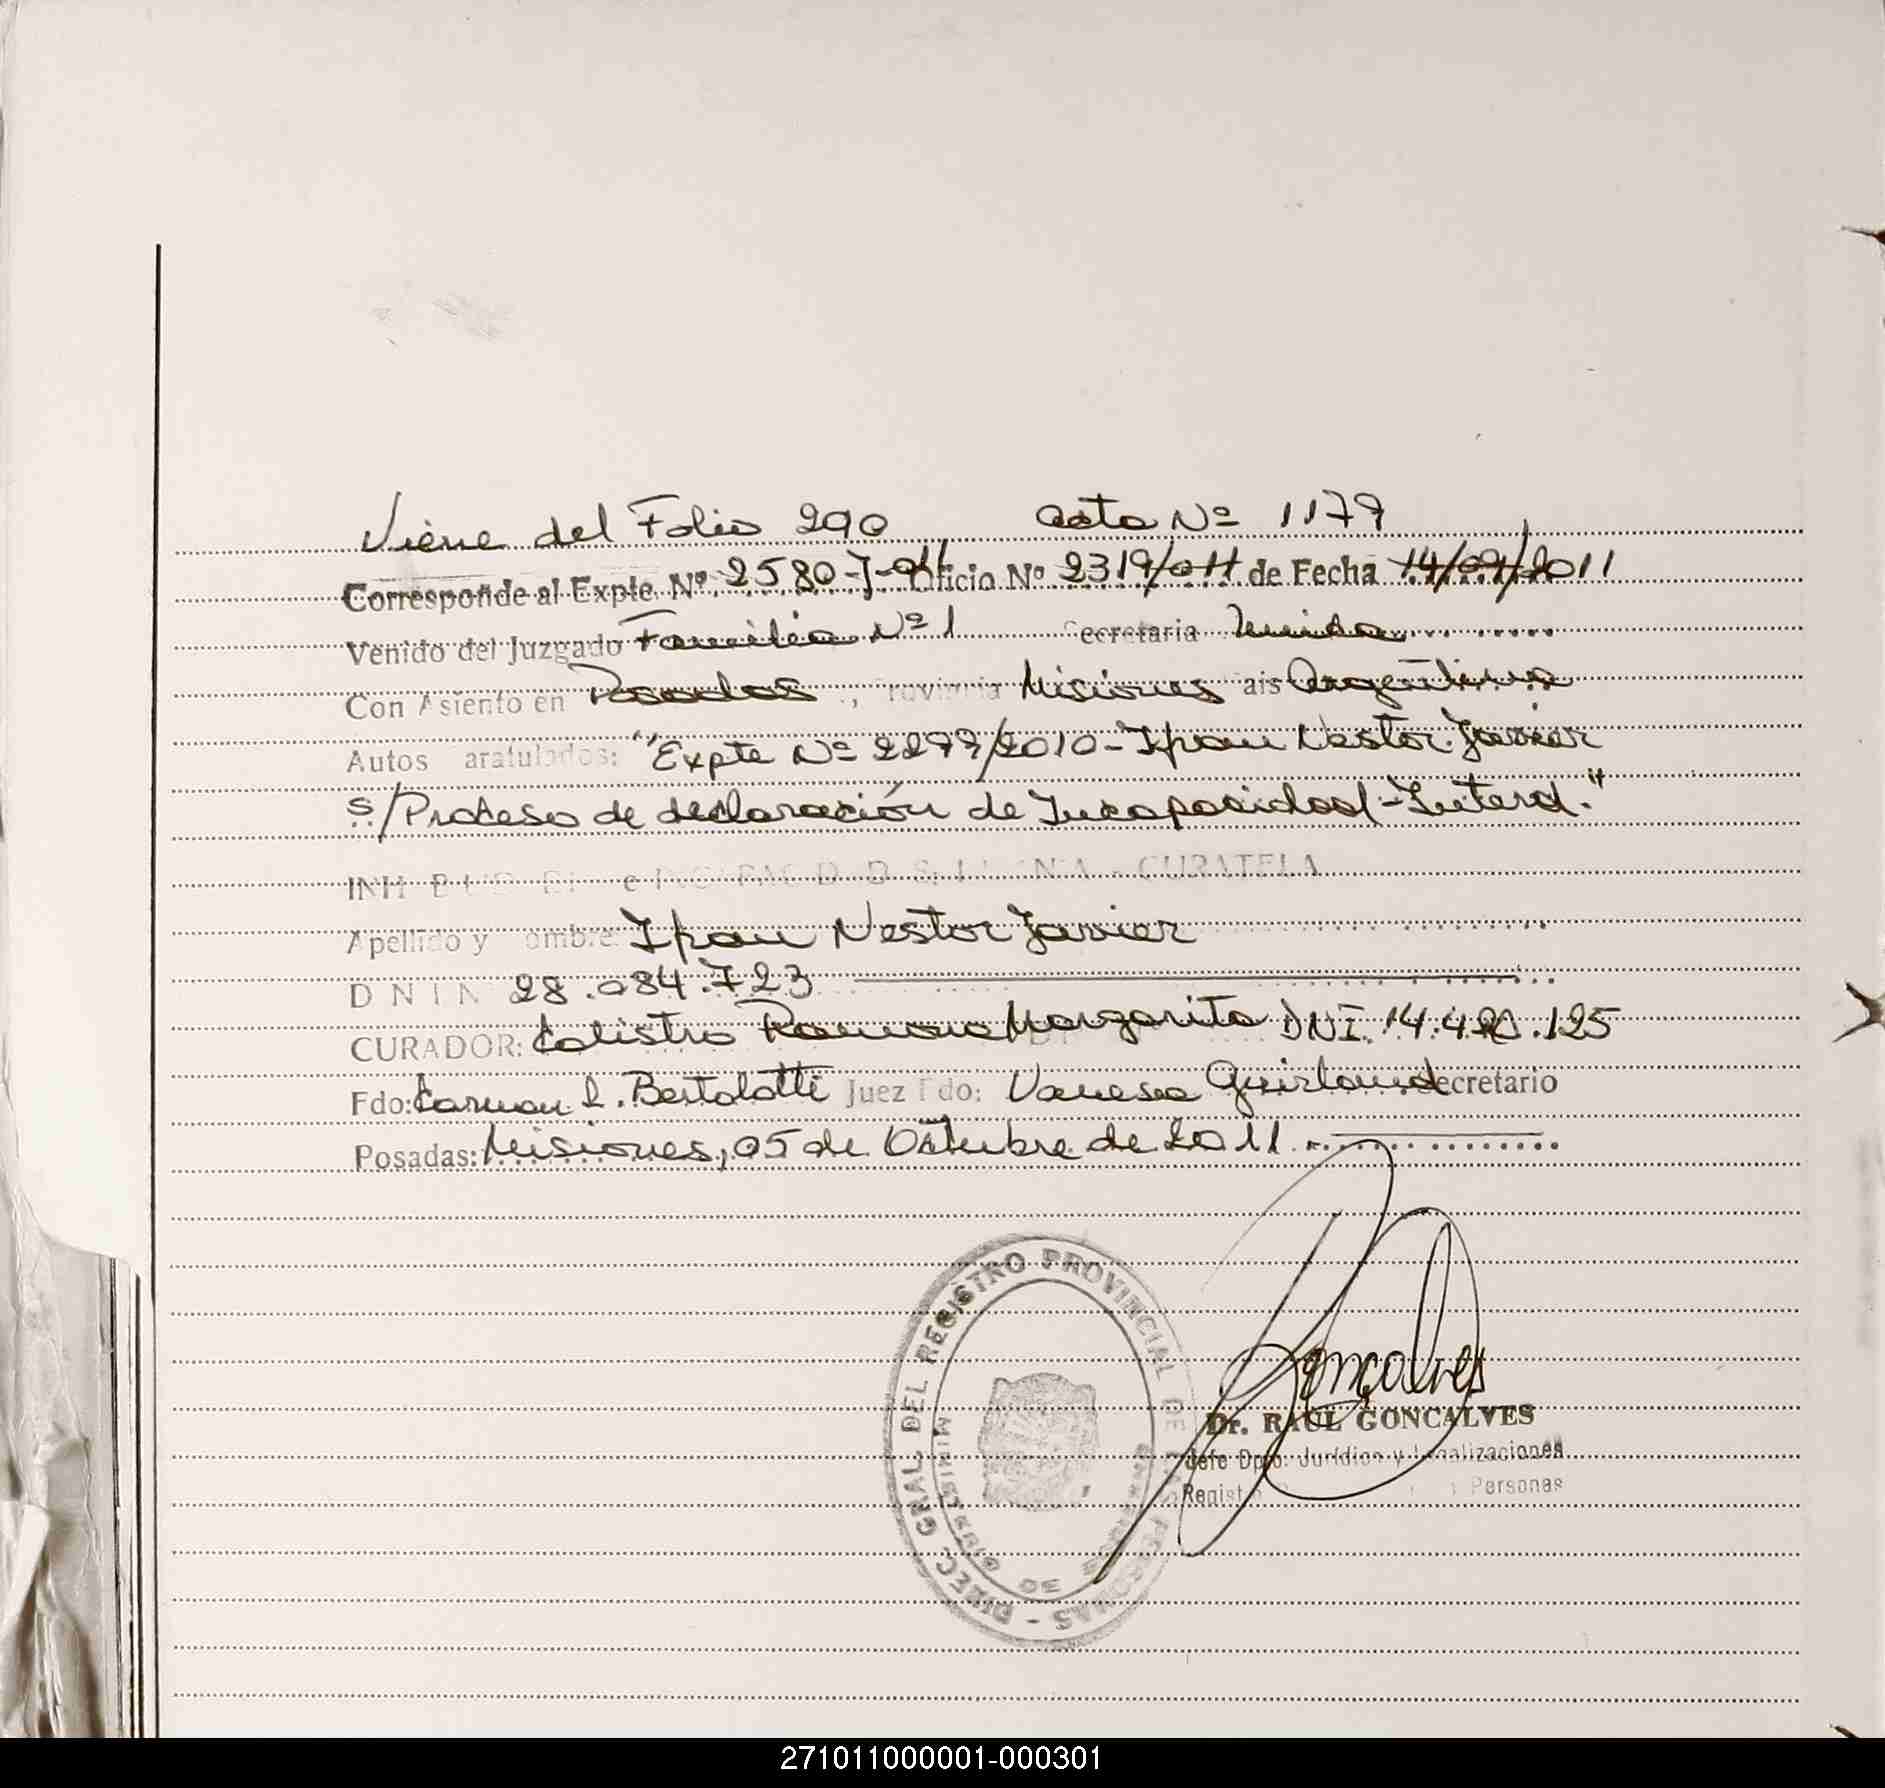 Viene del Folio 290 Acta Nº 1179
Corresponde al Expte. Nº 2580-J-011 Oficio Nº 2319/011 de Fecha 14/09/2011
Venido del Juzgado Familia Nº 1 Secretaria Unica
Con Asiento en Posadas, Provincia Misiones Pais Argentina
Autos caratulados: "Expte Nº 2299/2010-Ipau Nestor Javier
s/Proceso de declaración de Incapacidad-Interd."
CURATELA
Apellido y Nombre: Ipau Nestor Javier
DNI Nº 28.084.723
CURADOR: Calistro Ramona Margarita DNI. 14.490.125
Fdo: Carmen L. Bertolotti Juez Fdo: Vanesa Guirland Secretario
Posadas: Misiones, 05 de Octubre de 2011
DIREC. GRAL. DEL REGISTRO PROVINCIAL DE LAS PERSONAS -
MINISTERIO DE GOBIERNO
Goncalves
Dr. RAUL GONCALVES
Jefe Dpto. Jurídico y Legalizaciones
Personas
271011000001-000301